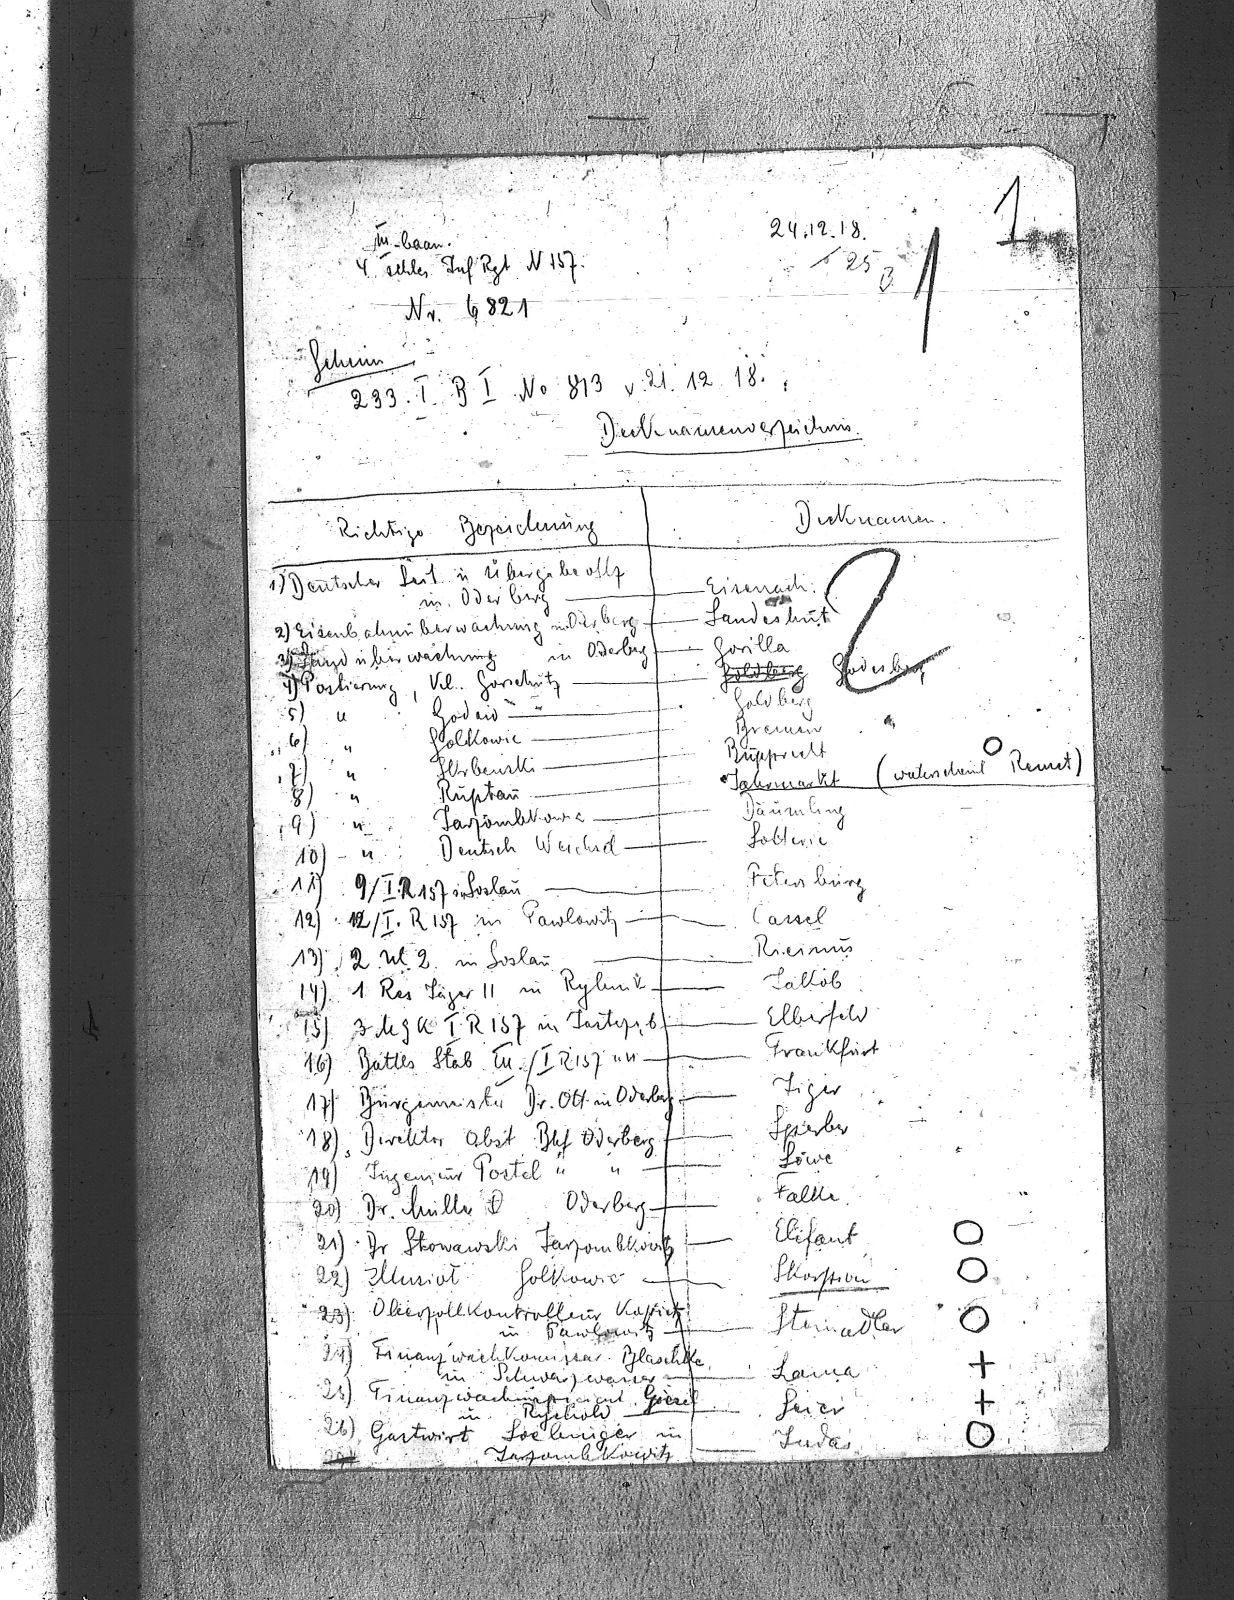 24.12.18.
1
III-baon.
4 schles Inf Rgt N 157.
25
1
Nr. 6821
Geheim
233. I B I No 813 v 21. 12 18.
Decknamenverzeichnis.
Richtige Bezeichnung Decknamen.
1) Deutscher Leit. u Übergabe
in Oderberg Eisenach.
2) Eisenbahnüberwachung in Oderberg Landeshut
2
3) überwachung in Oderberg Gorilla
4) Postierung, Vd. Gorschütz Goldberg Godesberg
5) " Godow " Goldberg
6) " Golkowic Bremen
7) " Skrbenski Rupprecht
8) " Ruptau Jahrmarkt ( Remet)
9) " Jarzombkowic Däumling
10) " Deutsch Weichsel Lotterie
11) 9/I.R 157 Loslau Petersburg
12) 12/I. R 157 in Pawlowitz Cassel
13) 2 Ul. 2. in Loslau Ricinus
14) 1 Res Jäger 11 in Rybnik Jakob
15) 3 M G K I R 157 in Elberfeld
16) Batls Stab III./I R 157 " " Frankfurt
17) Bürgermeister Dr. Ott in Oderberg Tiger
18) Direktor Obst Bhf Oderberg Sperber
19) Ingenieur Postel " " Löwe
20) Dr. Müller Oderberg Falke.
21) Dr Skowawski Jarzombkowitz Elifant O
22) Golkowic Skorpion O
23) Oberzollkontrolleur
in Pawlowitz Steinadler O
24) Finanzwachkomissar Blaschke
in Schwarzwasser Lama +
25) Finanzwach
in Geier +
26) Gastwirt in
Jarzombkowitz Judas O